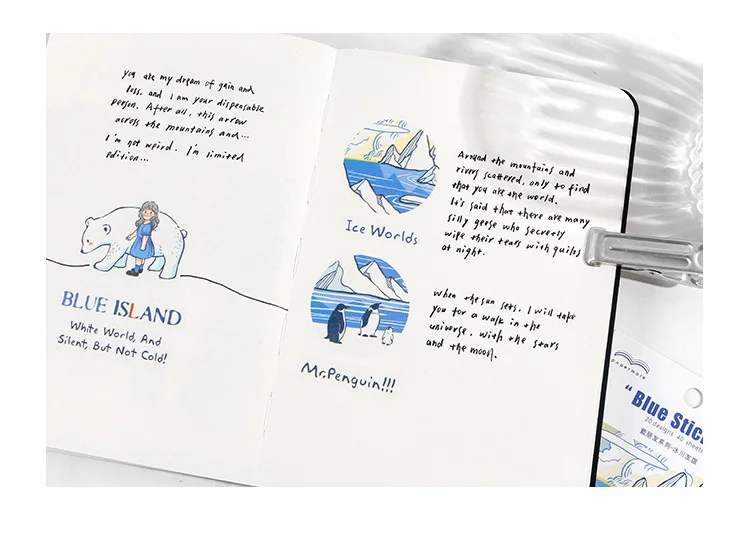 you are my dream of gain and
loss, and I am your dispensable
person. After all, this arrow
across the mountains and...
I'm not weird. I'm limited
edition...
BLUE ISLAND
White World, And
Silent, But Not Cold!
Ice Worlds
Around the mountains and
rivers scattered, only to find
that you are the world.
It's said that there are many
silly geese who secretly
wipe their tears with quilts
at night.
Mr.Penguin!!!
When the sun sets, I will take
you for a walk in the
universe, with the stars
and the moon.
papermore
"Blue Stic
20designs. 40 sheets